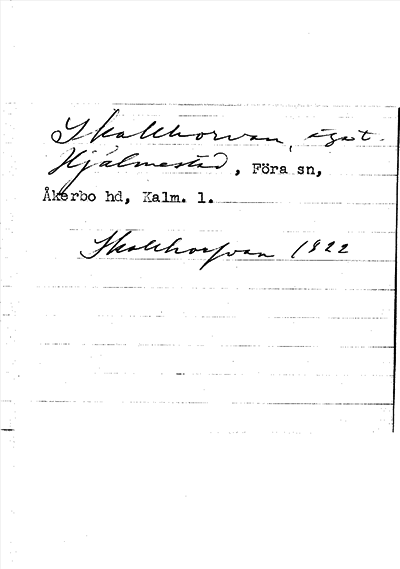 Skallhorvan, ägot.
Hjälmestad, Föra sn,
Åkerbo hd, Kalm. l.
Skallhorfvan 1822